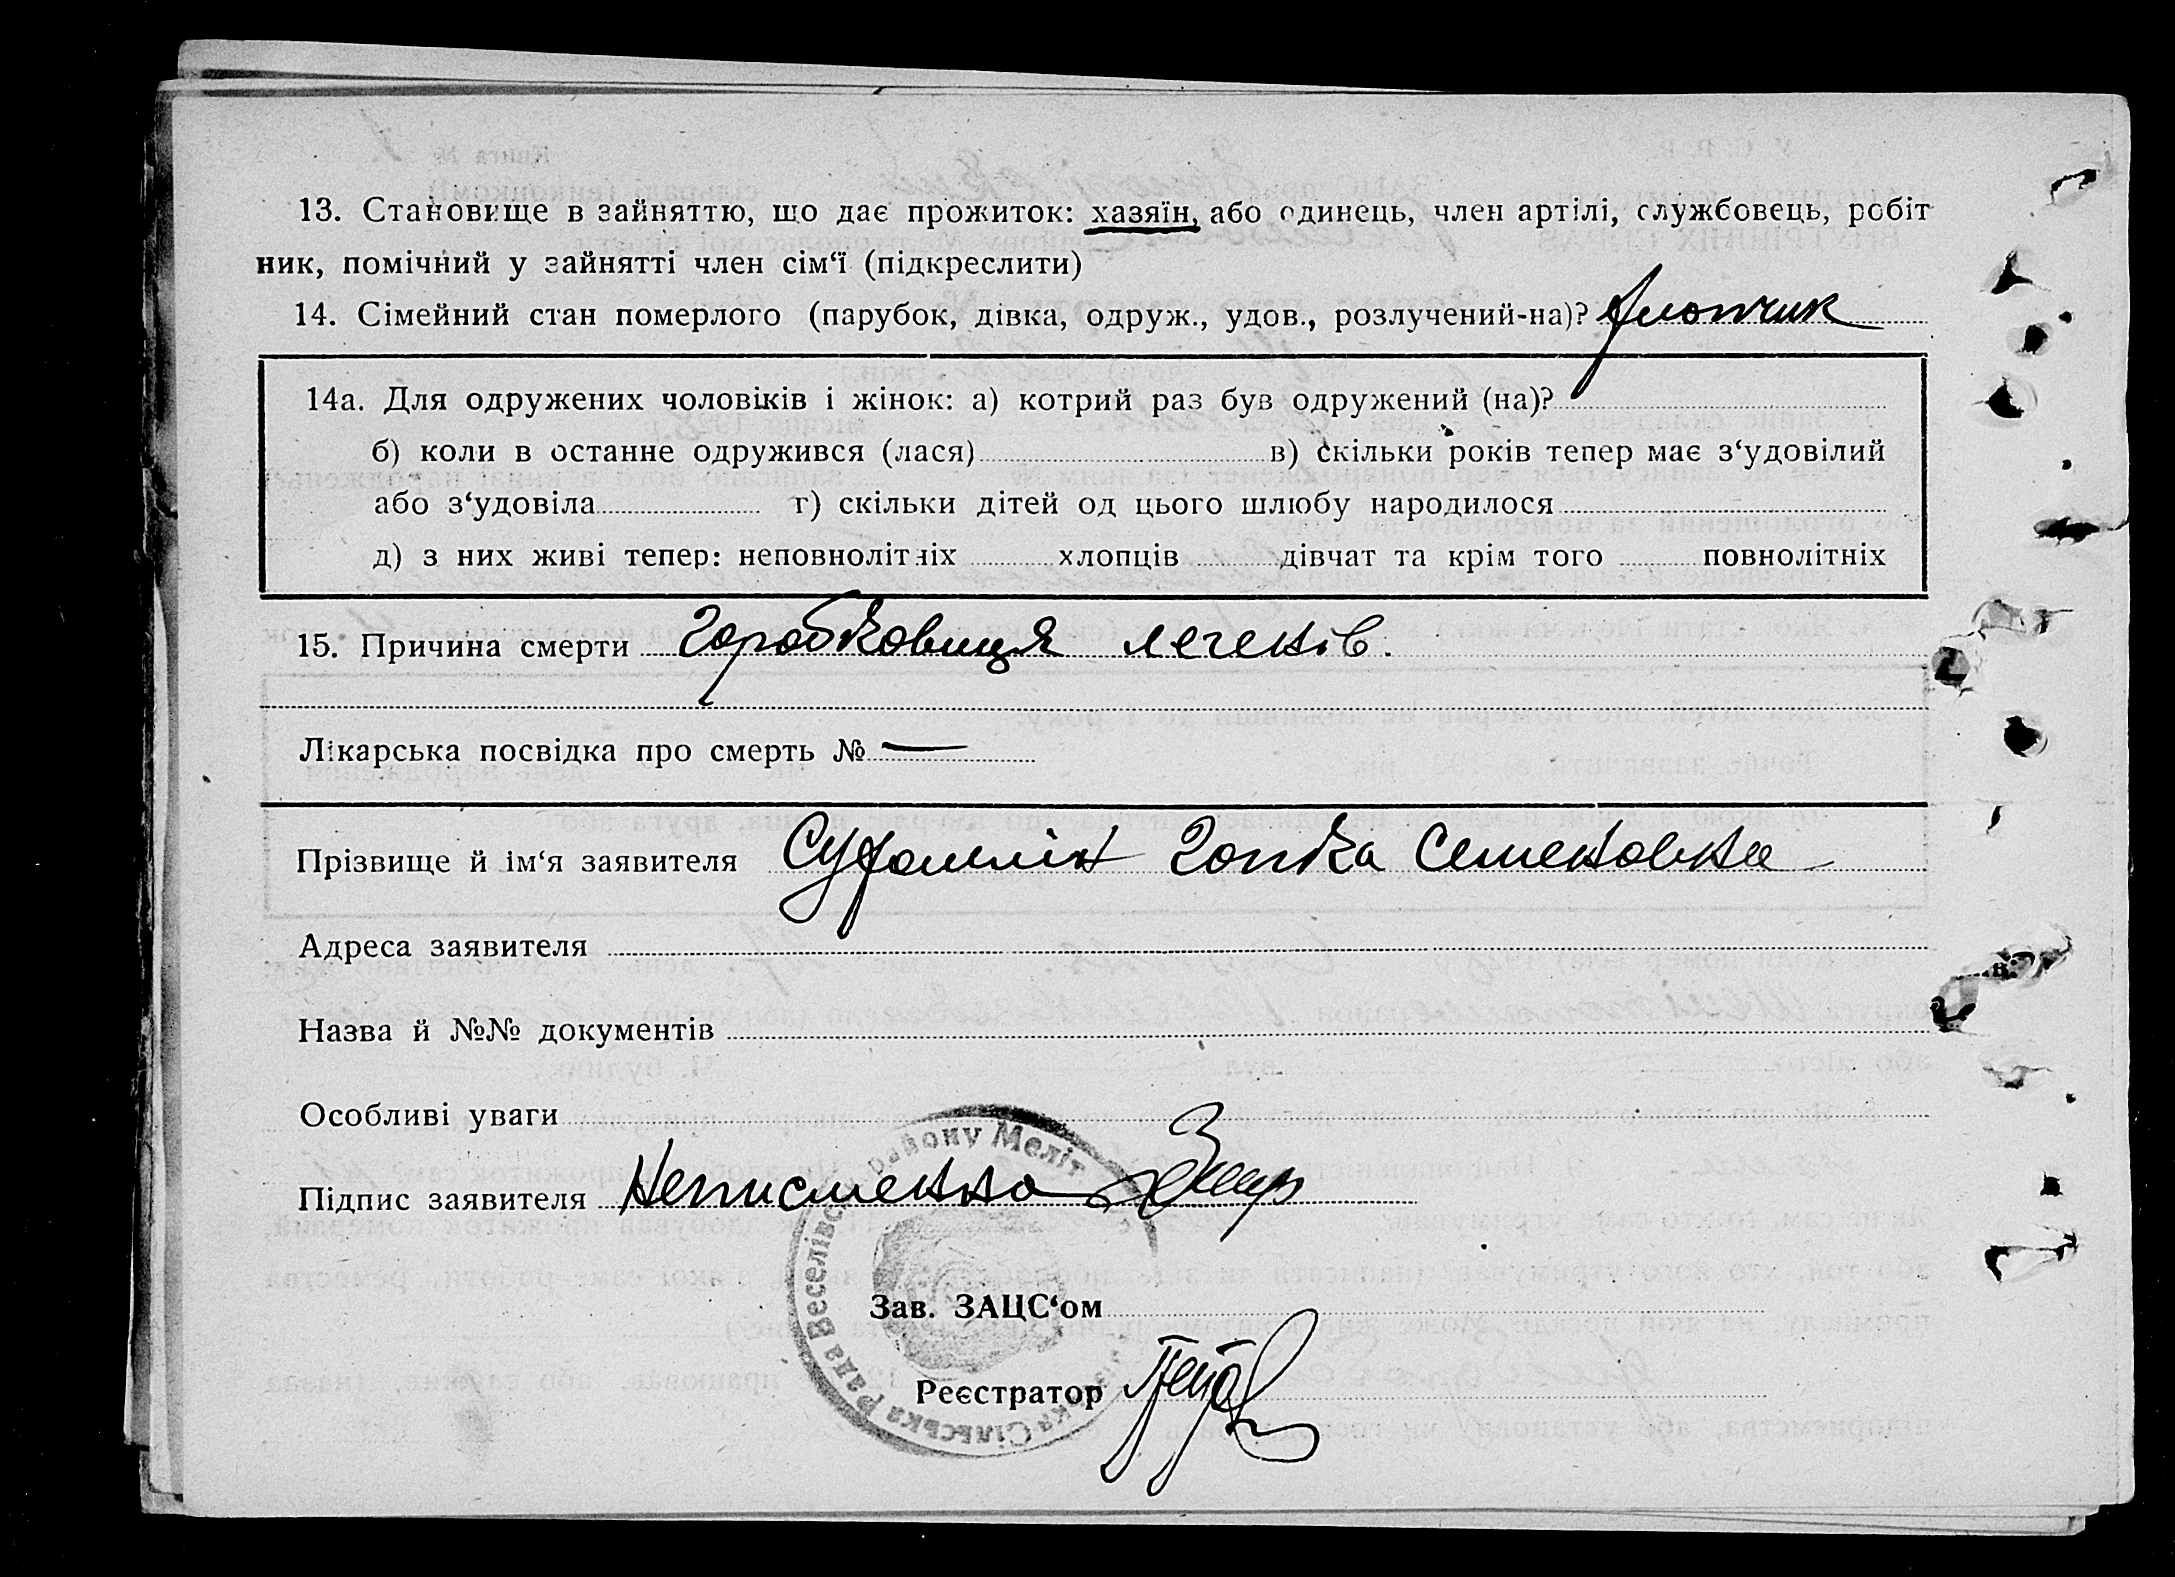 13. Становище в зайняттю, що дає прожиток: хазяїн, або одинець, член артілі, службовець, робіт
ник, помічний у зайнятті член сім‘ї (підкреслити)
14. Сімейний стан померлого (парубок, дівка, одруж., удов., розлучений-на)? хлопчик
14а. Для одружених чоловіків і жінок: а) котрий раз був одружений (на)?
б) коли в останне одружився (лася) в) скільки років тепер має з‘удовілий
або з‘удовіла г) скільки дітей од цього шлюбу народилося
д) з них живі тепер: неповнолітніх хлопців дівчат та крім того повнолітніх
15. Причина смерти горобковиця легенів.
Лікарська посвідка про смерть № —
Прізвище й ім‘я заявителя Семеновна
Адреса заявителя
Назва й №№ документів
Особливі уваги
Підпис заявителя Неписменна
Зав. ЗАЦС‘ом
Реєстратор
ка Сільська Рада Веселівськ району Меліт